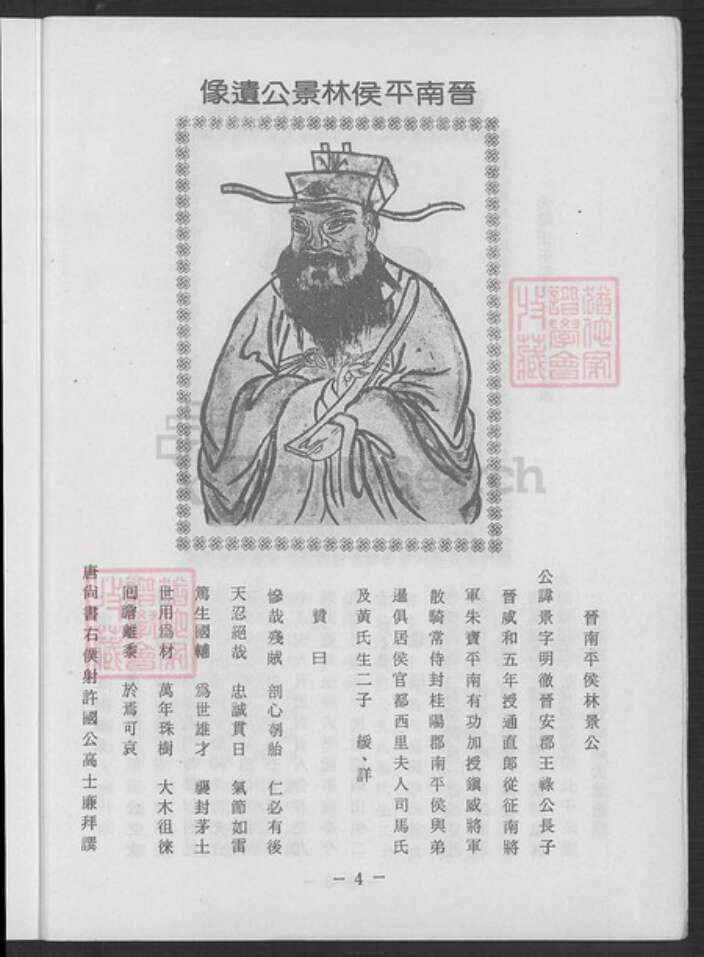 晉南平侯林景公遺像
晉南平侯林景公
公諱景字明徹晉安郡王祿公長子
晉咸和五年授通直郎從征南將
軍朱寶平南有功加授鎮威將軍
散騎常侍封桂陽郡南平侯與弟
暹俱居侯官都西里夫人司馬氏
及黃氏生二子　綏、詳
贊曰
慘哉殘賊　剖心刳胎　仁必有後
天忍絕哉　忠誠貫日　氣節如雷
篤生國輔　為世雄才　襲封茅土
世用為材　萬年珠樹　大木徂徠
回瞻離黍　於焉可哀
唐尚書右僕射許國公高士廉拜譔
－4－